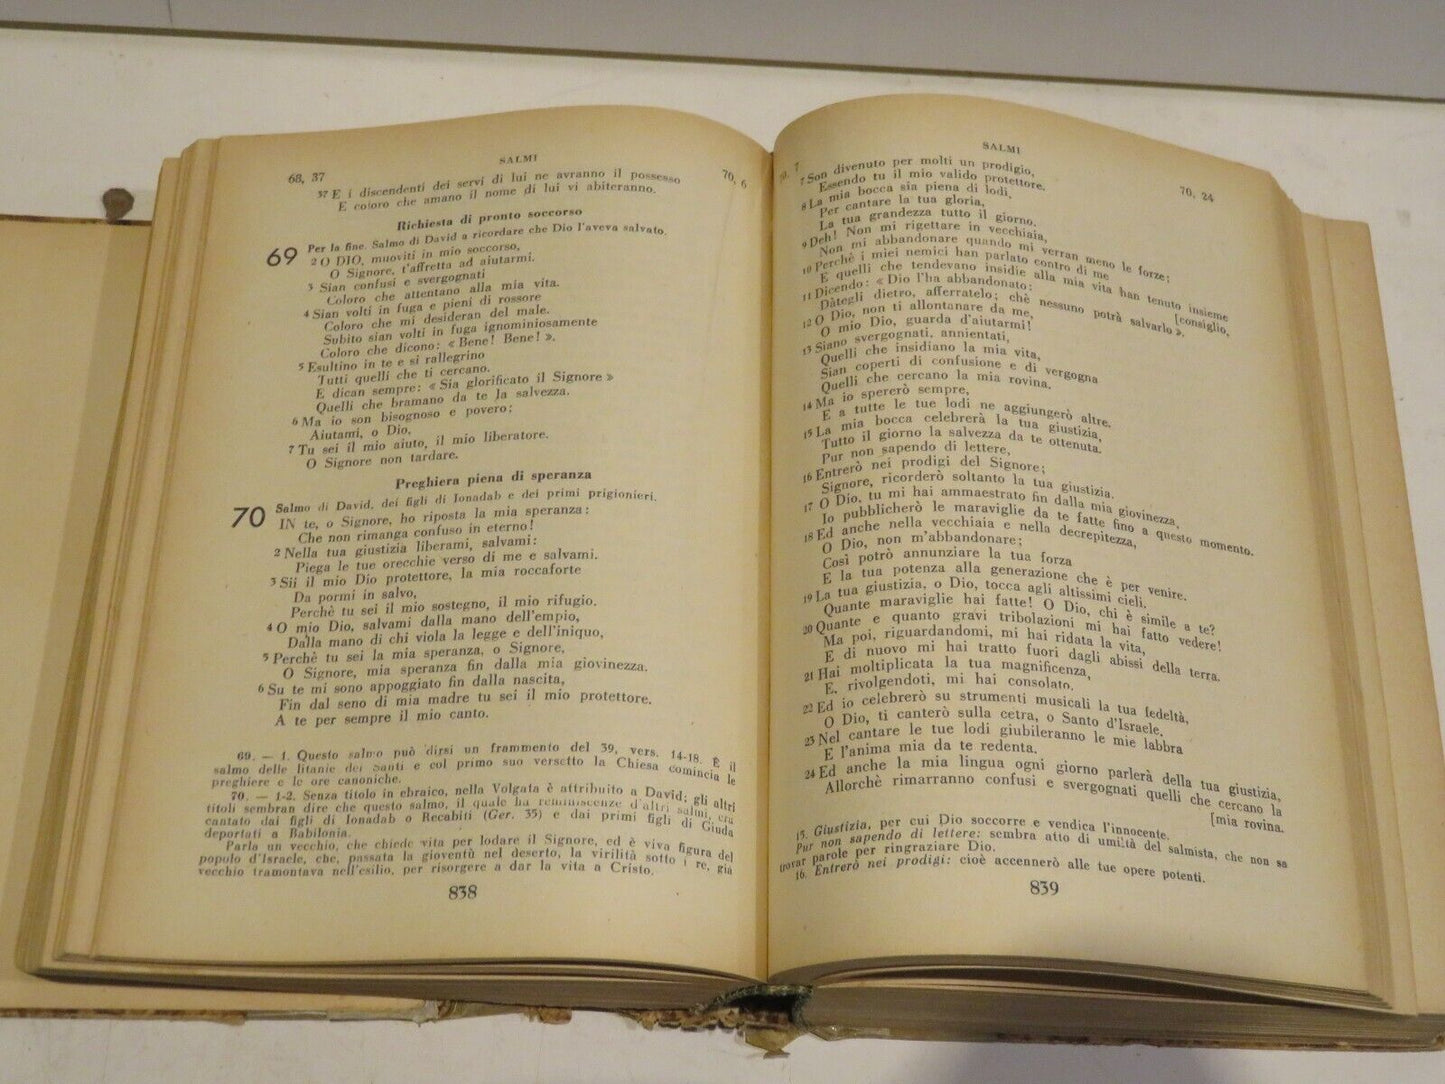 SALMI
68, 37
70, 6
37 E i discendenti dei servi di lui ne avranno il possesso
E coloro che amano il nome di lui vi abiteranno.
Richiesta di pronto soccorso
69 Per la fine. Salmo di David a ricordare che Dio l'aveva salvato.
2 O DIO, muoviti in mio soccorso,
O Signore, t'affretta ad aiutarmi.
3 Sian confusi e svergognati
Coloro che attentano alla mia vita.
4 Sian volti in fuga e pieni di rossore
Coloro che mi desideran del male.
Subito sian volti in fuga ignominiosamente
Coloro che dicono: « Bene! Bene! ».
5 Esultino in te e si rallegrino
Tutti quelli che ti cercano.
E dican sempre: « Sia glorificato il Signore »
Quelli che bramano da te la salvezza.
6 Ma io son bisognoso e povero:
Aiutami, o Dio,
7 Tu sei il mio aiuto, il mio liberatore.
O Signore non tardare.
Preghiera piena di speranza
70 Salmo di David, dei figli di Ionadab e dei primi prigionieri.
IN te, o Signore, ho riposta la mia speranza:
Che non rimanga confuso in eterno!
2 Nella tua giustizia liberami, salvami:
Piega le tue orecchie verso di me e salvami.
3 Sii il mio Dio protettore, la mia roccaforte
Da pormi in salvo,
Perchè tu sei il mio sostegno, il mio rifugio.
4 O mio Dio, salvami dalla mano dell'empio,
Dalla mano di chi viola la legge e dell'iniquo,
5 Perchè tu sei la mia speranza, o Signore,
O Signore, mia speranza fin dalla mia giovinezza.
6 Su te mi sono appoggiato fin dalla nascita,
Fin dal seno di mia madre tu sei il mio protettore.
A te per sempre il mio canto.
69. — 1. Questo salmo può dirsi un frammento del 39, vers. 14-18. È il
salmo delle litanie dei Santi e col primo suo versetto la Chiesa comincia le
preghiere e le ore canoniche.
70. — 1-2. Senza titolo in ebraico, nella Volgata è attribuito a David; gli altri
titoli sembran dire che questo salmo, il quale ha reminiscenze d'altri salmi, era
cantato dai figli di Ionadab o Recabiti (Ger. 35) e dai primi figli di Giuda
deportati a Babilonia.
Parla un vecchio, che chiede vita per lodare il Signore, ed è viva figura del
popolo d'Israele, che, passata la gioventù nel deserto, la virilità sotto i re, già
vecchio tramontava nell'esilio, per risorgere a dar la vita a Cristo.
838
SALMI
70, 7
70, 24
7 Son divenuto per molti un prodigio,
Essendo tu il mio valido protettore.
8 La mia bocca sia piena di lodi,
Per cantare la tua gloria,
La tua grandezza tutto il giorno.
9 Deh! Non mi rigettare in vecchiaia,
Non mi abbandonare quando mi verran meno le forze;
10 Perchè i miei nemici han parlato contro di me
E quelli che tendevano insidie alla mia vita han tenuto insieme
[consiglio,
11 Dicendo: « Dio l'ha abbandonato:
Dàtegli dietro, afferratelo; chè nessuno potrà salvarlo ».
12 O Dio, non ti allontanare da me,
O mio Dio, guarda d'aiutarmi!
13 Siano svergognati, annientati,
Quelli che insidiano la mia vita,
Sian coperti di confusione e di vergogna
Quelli che cercano la mia rovina.
14 Ma io spererò sempre,
E a tutte le tue lodi ne aggiungerò altre.
15 La mia bocca celebrerà la tua giustizia,
Tutto il giorno la salvezza da te ottenuta.
Pur non sapendo di lettere,
16 Entrerò nei prodigi del Signore;
Signore, ricorderò soltanto la tua giustizia.
17 O Dio, tu mi hai ammaestrato fin dalla mia giovinezza,
Io pubblicherò le maraviglie da te fatte fino a questo momento.
18 Ed anche nella vecchiaia e nella decrepitezza,
O Dio, non m'abbandonare;
Così potrò annunziare la tua forza
E la tua potenza alla generazione che è per venire.
19 La tua giustizia, o Dio, tocca agli altissimi cieli.
Quante maraviglie hai fatte! O Dio, chi è simile a te?
20 Quante e quanto gravi tribolazioni mi hai fatto vedere!
Ma poi, riguardandomi, mi hai ridata la vita,
E di nuovo mi hai tratto fuori dagli abissi della terra.
21 Hai moltiplicata la tua magnificenza,
E, rivolgendoti, mi hai consolato.
22 Ed io celebrerò su strumenti musicali la tua fedeltà,
O Dio, ti canterò sulla cetra, o Santo d'Israele.
23 Nel cantare le tue lodi giubileranno le mie labbra
E l'anima mia da te redenta.
24 Ed anche la mia lingua ogni giorno parlerà della tua giustizia,
Allorchè rimarranno confusi e svergognati quelli che cercano la
[mia rovina.
15. Giustizia, per cui Dio soccorre e vendica l'innocente.
Pur non sapendo di lettere: sembra atto di umiltà del salmista, che non sa
trovar parole per ringraziare Dio.
16. Entrerò nei prodigi: cioè accennerò alle tue opere potenti.
839